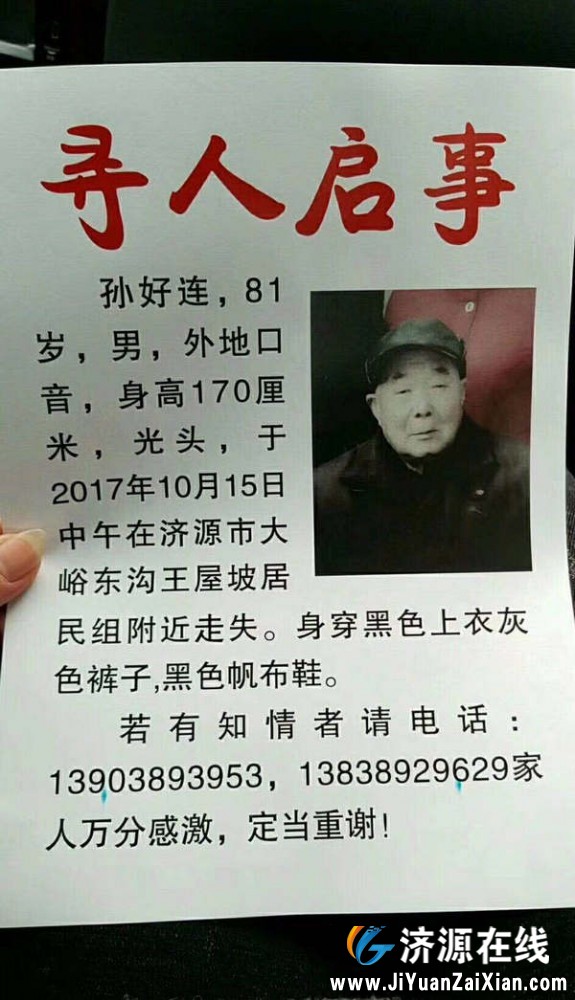 寻人启事
孙好连，81
岁，男，外地口
音，身高170厘
米，光头，于
2017年10月15日
中午在济源市大
峪东沟王屋坡居
民组附近走失。身穿黑色上衣灰
色裤子,黑色帆布鞋。
若有知情者请电话：
13903893953，13838929629家
人万分感激，定当重谢！
济源在线
www.JiYuanZaiXian.com